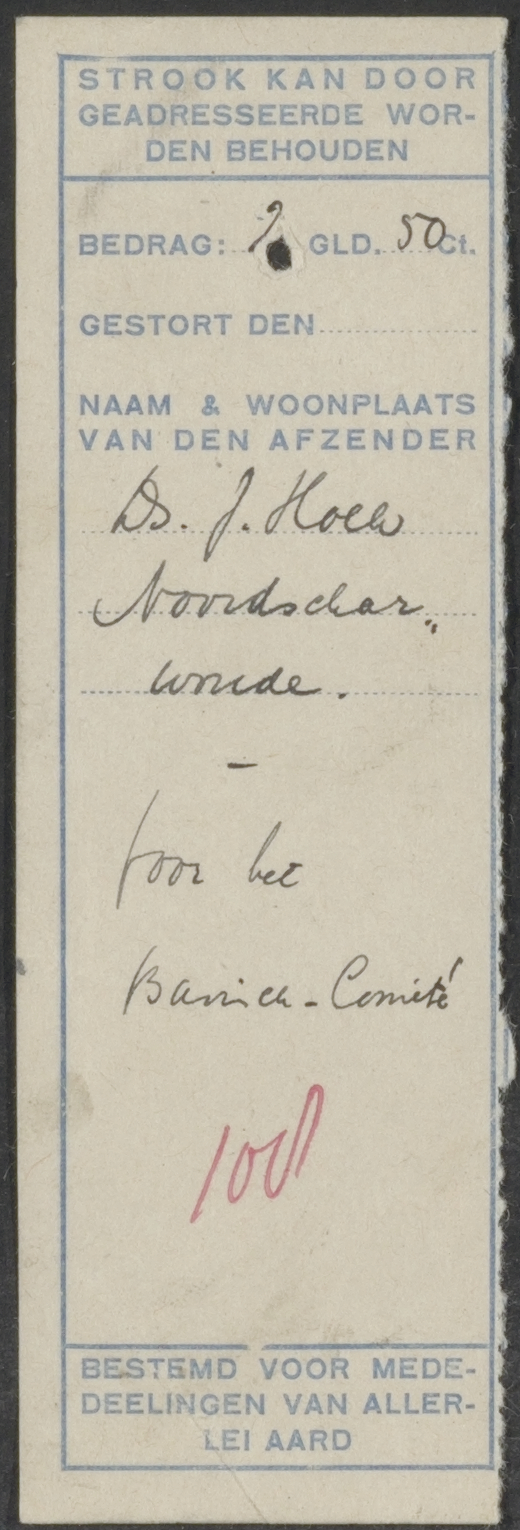 STROOK KAN DOOR
GEADRESSEERDE WOR-
DEN BEHOUDEN
BEDRAG: 2 GLD. 50 Ct.
GESTORT DEN
NAAM & WOONPLAATS
VAN DEN AFZENDER
Ds. J.
Noordschar„
woude.
–
Voor het
Comité
108
BESTEMD VOOR MEDE-
DEELINGEN VAN ALLER-
LEI AARD